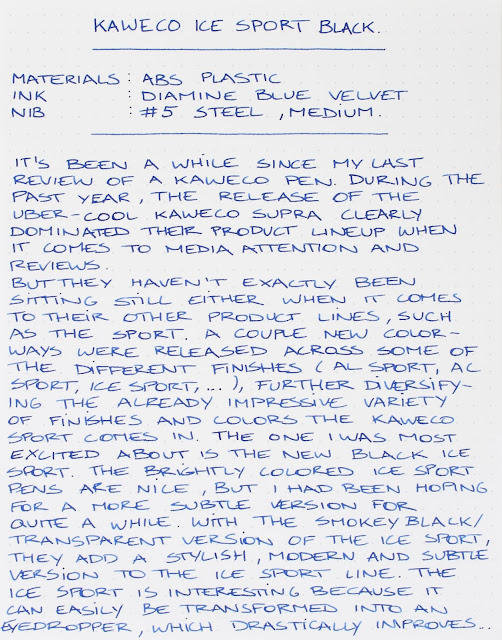 KAWECO ICE SPORT BLACK.
MATERIALS : ABS PLASTIC
INK : DIAMINE BLUE VELVET
NIB : #5 STEEL , MEDIUM.
IT'S BEEN A WHILE SINCE MY LAST
REVIEW OF A KAWECO PEN. DURING THE
PAST YEAR, THE RELEASE OF THE
UBER-COOL KAWECO SUPRA CLEARLY
DOMINATED THEIR PRODUCT LINEUP WHEN
IT COMES TO MEDIA ATTENTION AND
REVIEWS.
BUT THEY HAVEN'T EXACTLY BEEN
SITTING STILL EITHER WHEN IT COMES
TO THEIR OTHER PRODUCT LINES, SUCH
AS THE SPORT. A COUPLE NEW COLOR-
WAYS WERE RELEASED ACROSS SOME OF
THE DIFFERENT FINISHES (AL SPORT, AC
SPORT, ICE SPORT, ...), FURTHER DIVERSIFY-
ING THE ALREADY IMPRESSIVE VARIETY
OF FINISHES AND COLORS THE KAWECO
SPORT COMES IN. THE ONE I WAS MOST
EXCITED ABOUT IS THE NEW BLACK ICE
SPORT. THE BRIGHTLY COLORED ICE SPORT
PENS ARE NICE, BUT I HAD BEEN HOPING
FOR A MORE SUBTLE VERSION FOR
QUITE A WHILE. WITH THE SMOKEY BLACK/
TRANSPARENT VERSION OF THE ICE SPORT,
THEY ADD A STYLISH, MODERN AND SUBTLE
VERSION TO THE ICE SPORT LINE. THE
ICE SPORT IS INTERESTING BECAUSE IT
CAN EASILY BE TRANSFORMED INTO AN
EYEDROPPER, WHICH DRASTICALLY IMPROVES...